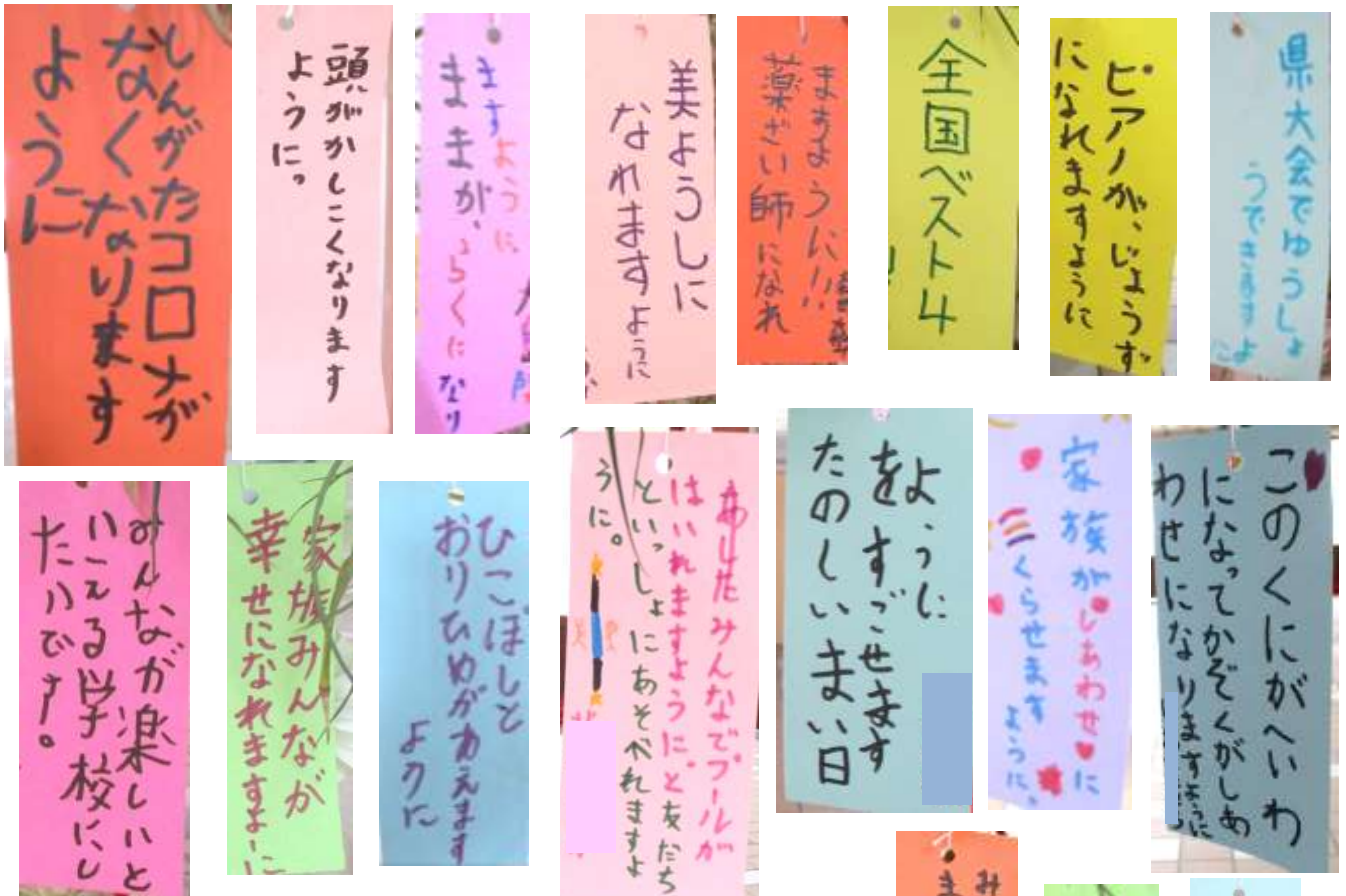 しんがたコロナが
なくなります
ように
頭がかしこくなります
ように。
ままが、らくになり
ますように
美ようしに
なれますように
薬ざい師になれ
ますように!!
全国ベスト4
ピアノが、じょうず
になれますように
県大会でゆうしょ
うできますよ
みんなが楽しいと
いえる学校にし
たいです。
家族みんなが
幸せになれますよーに
ひこぼしと
おりひめがあえます
ように
あしたみんなでプールが
はいれますように。と友だち
といっしょにあそべれますよ
うに。
たのしいまい日
をすごせます
ように
家族がしあわせに
くらせます
ように。
このくにがへいわ
になってかぞくがしあ
わせになりますように